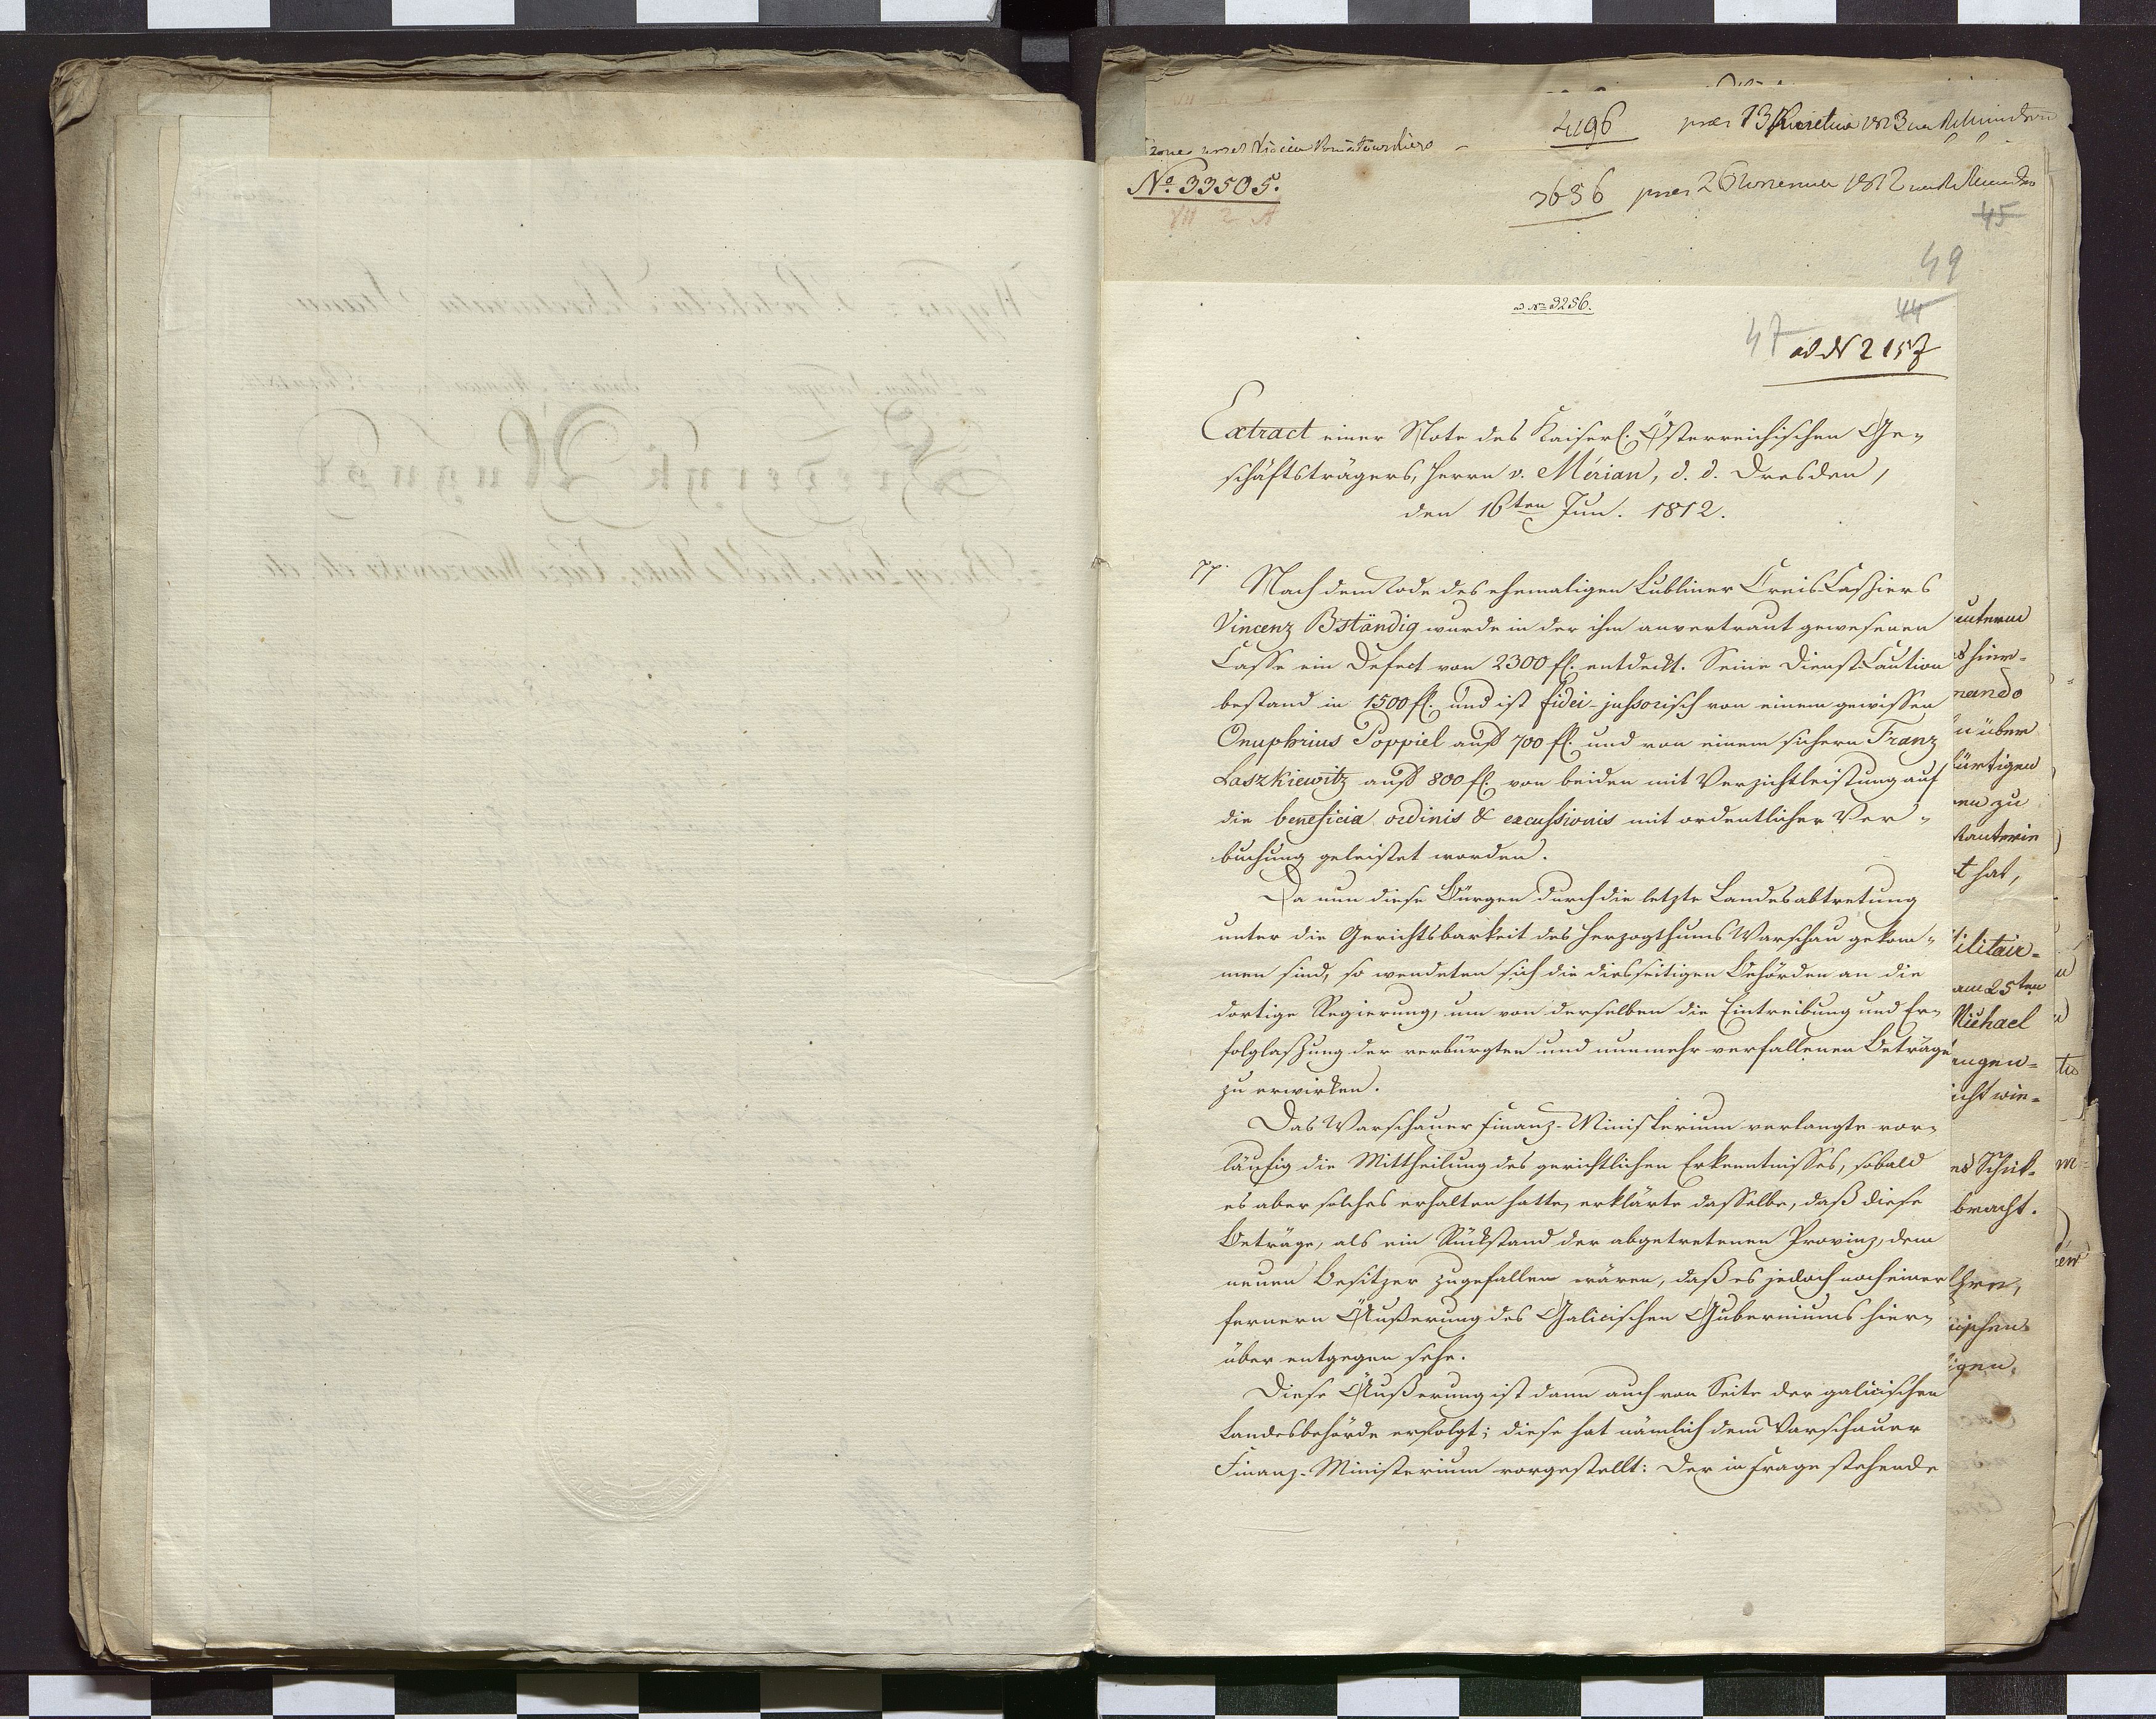 4196
No. 33505.
VII 2 A
3656
45
49
ad No. 3256.
44
47 ad N 2157
Extract einer Note des Kaiserl. Österreichischen Ge-
schäftsträgers, Herrn v. Mérian, d. d. Dresden,
den 16ten Jun. 1812.
pp. Nach dem Tode des ehemaligen Lubliner Creis-Cassiers
Vincenz Bständig wurde in der ihm anvertraut gewesenen
Casse ein Defect von 2300 fl. entdeckt. Seine Dienst-Caution
bestand in 1500 fl. und ist fidei-jussorisch von einem gewissen
Onuphrius Poppiel auf 700 fl. und von einem sichern Franz
Laszkiewitz auf 800 fl. von beiden mit Verzichtleistung auf
die beneficia ordinis & excussionis mit ordentlicher Ver-
buchung geleistet worden.
Da nun diese Bürgen durch die letzte Landesabtretung
unter die Gerichtsbarkeit des Herzogthums Warschau gekom-
men sind, so wendeten sich die diesseitigen Behörden an die
dortige Regierung, um von derselben die Eintreibung und Er-
folglassung der verbürgten und nunmehr verfallenen Beträge
zu erwirken.
Das Warschauer Finanz-Ministerium verlangte vor-
läufig die Mittheilung des gerichtlichen Erkenntnisses, sobald
es aber solches erhalten hatte, erklärte dasselbe, daß diese
Beträge, als ein Rückstand der abgetretenen Provinz, dem
neuen Besitzer zugefallen wären, daß es jedoch noch einer
fernern Äußerung des Galicischen Guberniums hier-
über entgegen sehe.
Diese Äußerung ist dann auch von Seite der galicischen
Landesbehörde erfolgt; diese hat nämlich dem Warschauer
Finanz-Ministerium vorgestellt: Der in Frage stehende
unterm
nando
n über
ürtigen
t hat,
ilitair-
am 25ten
Michael
angen-
icht wie-
bracht.